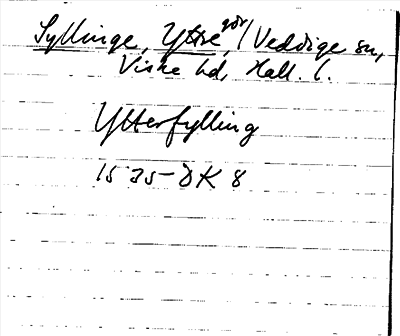 Syllinge, Yttre, går/ Veddige sn,
Viske hd, Hall. l.
Ytterfylling
1535 DK 8